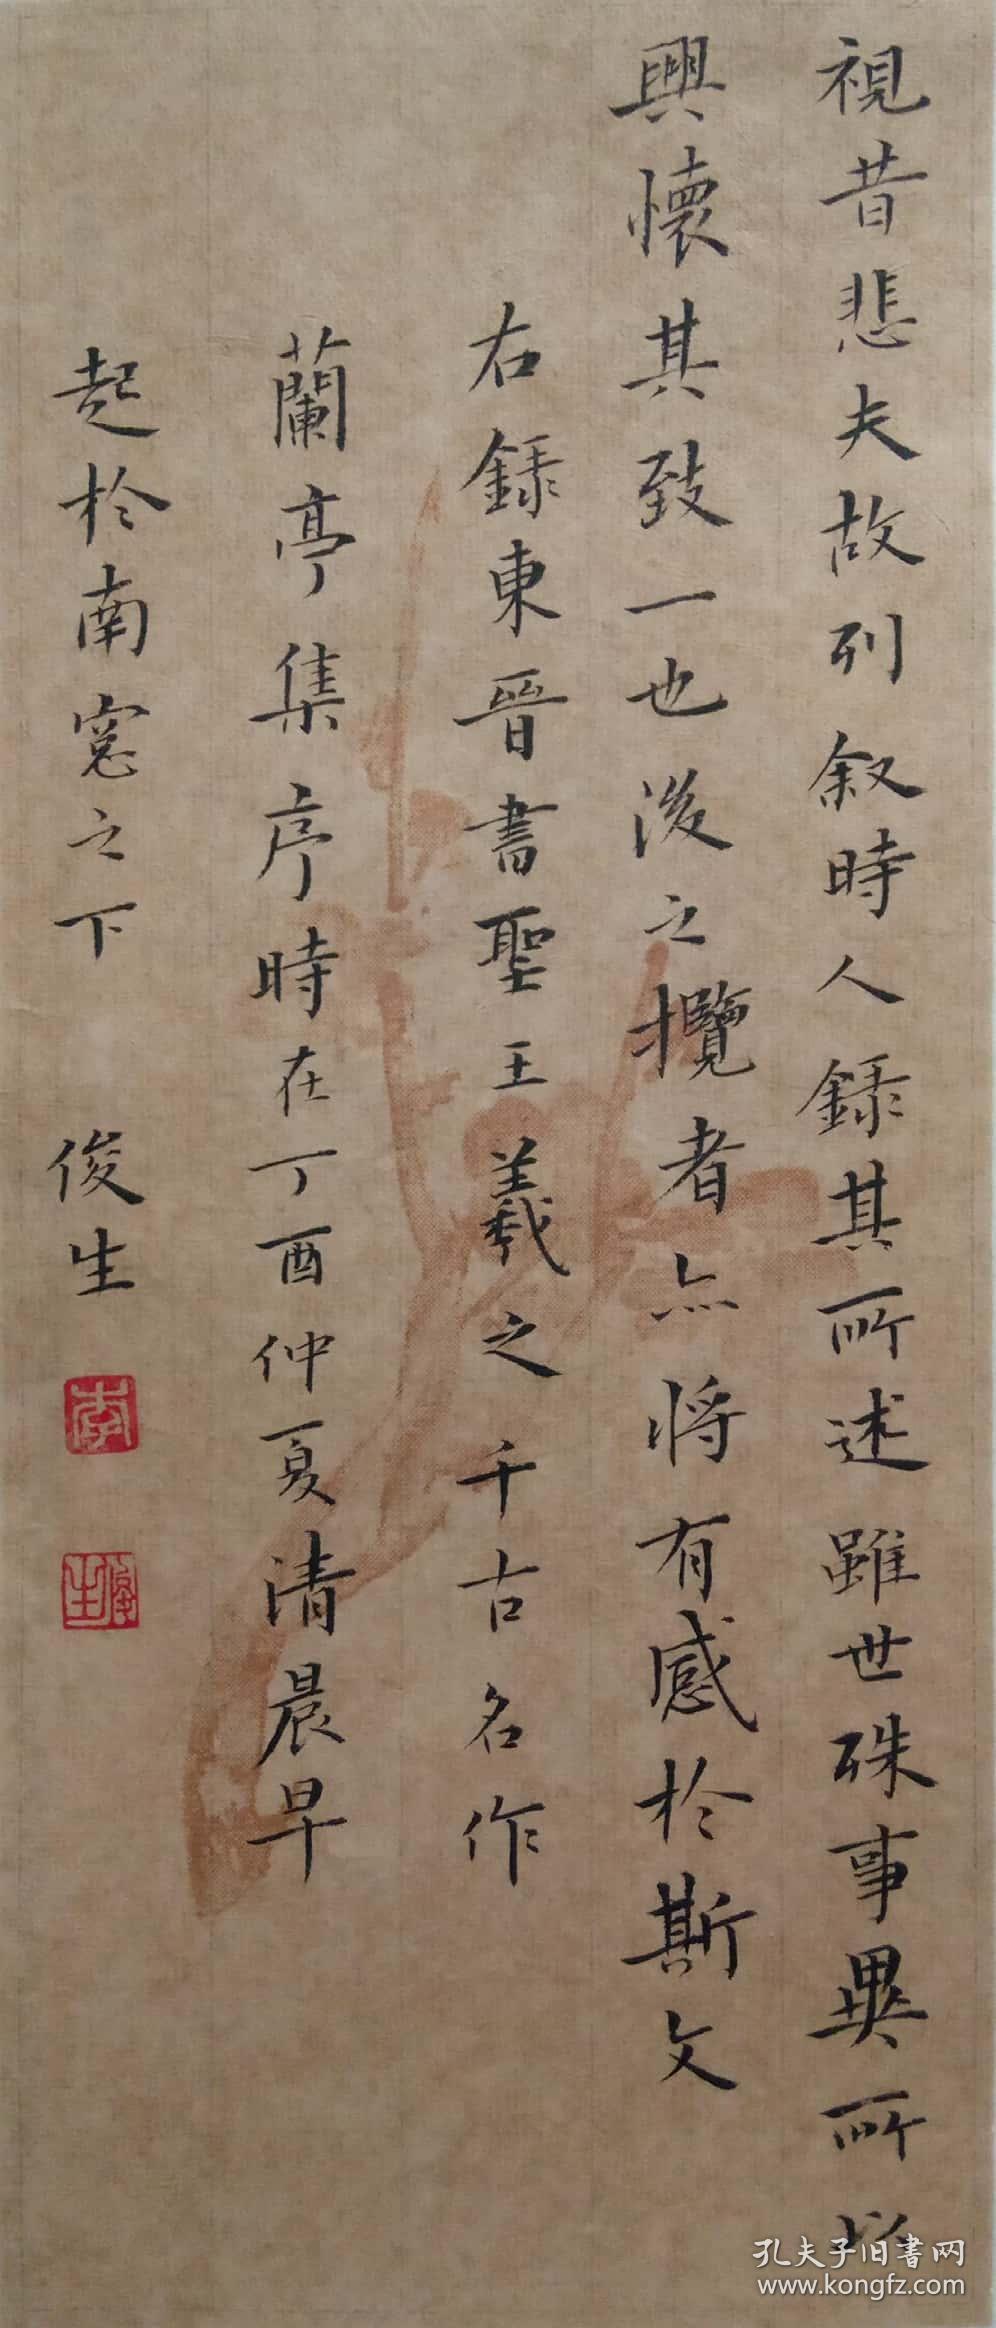 視昔悲夫故列叙時人録其所述雖世殊事異所以
興懷其致一也後之攬者亦将有感於斯文
右録東晉書聖王羲之千古名作
蘭亭集序時在丁酉仲夏清晨早
起於南窓之下 俊生
李
俊生
孔夫子旧书网
www.kongfz.com